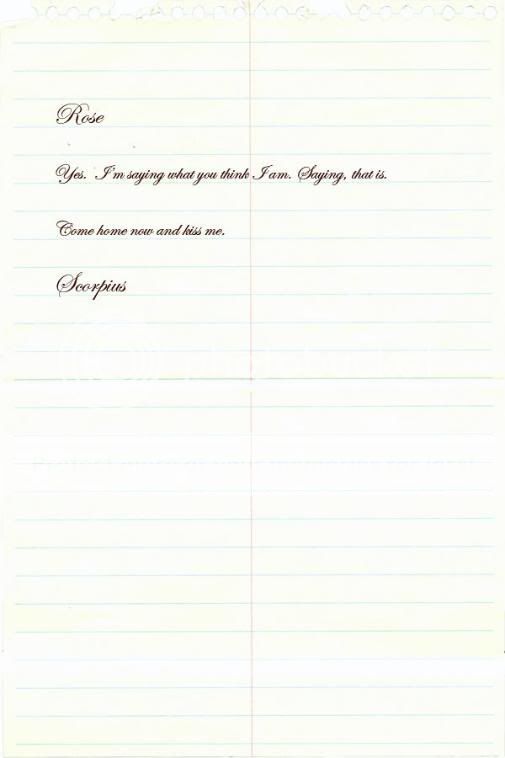 Rose
Yes. I'm saying what you think I am. Saying, that is.
Come home now and kiss me.
Scorpius
photobucket